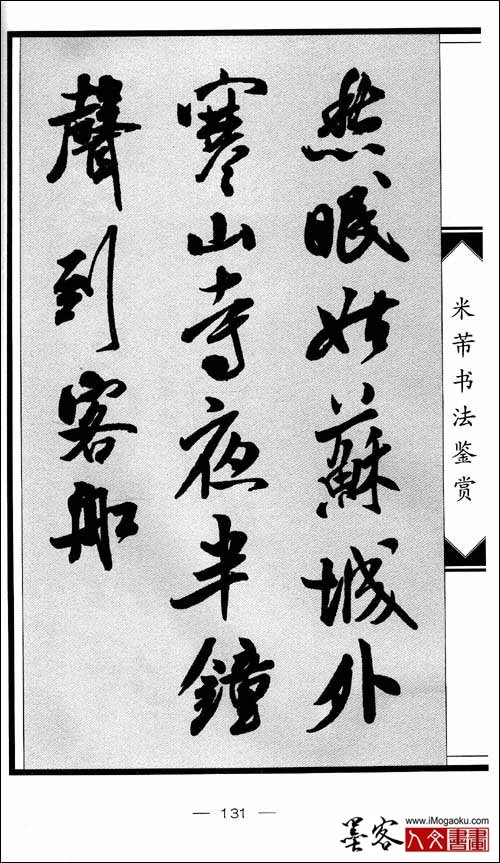 米芾书法鉴赏
愁眠姑蘇城外
寒山寺夜半鐘
聲到客船
— 131 —
www.iMogaoku.com
墨客 人文書畫